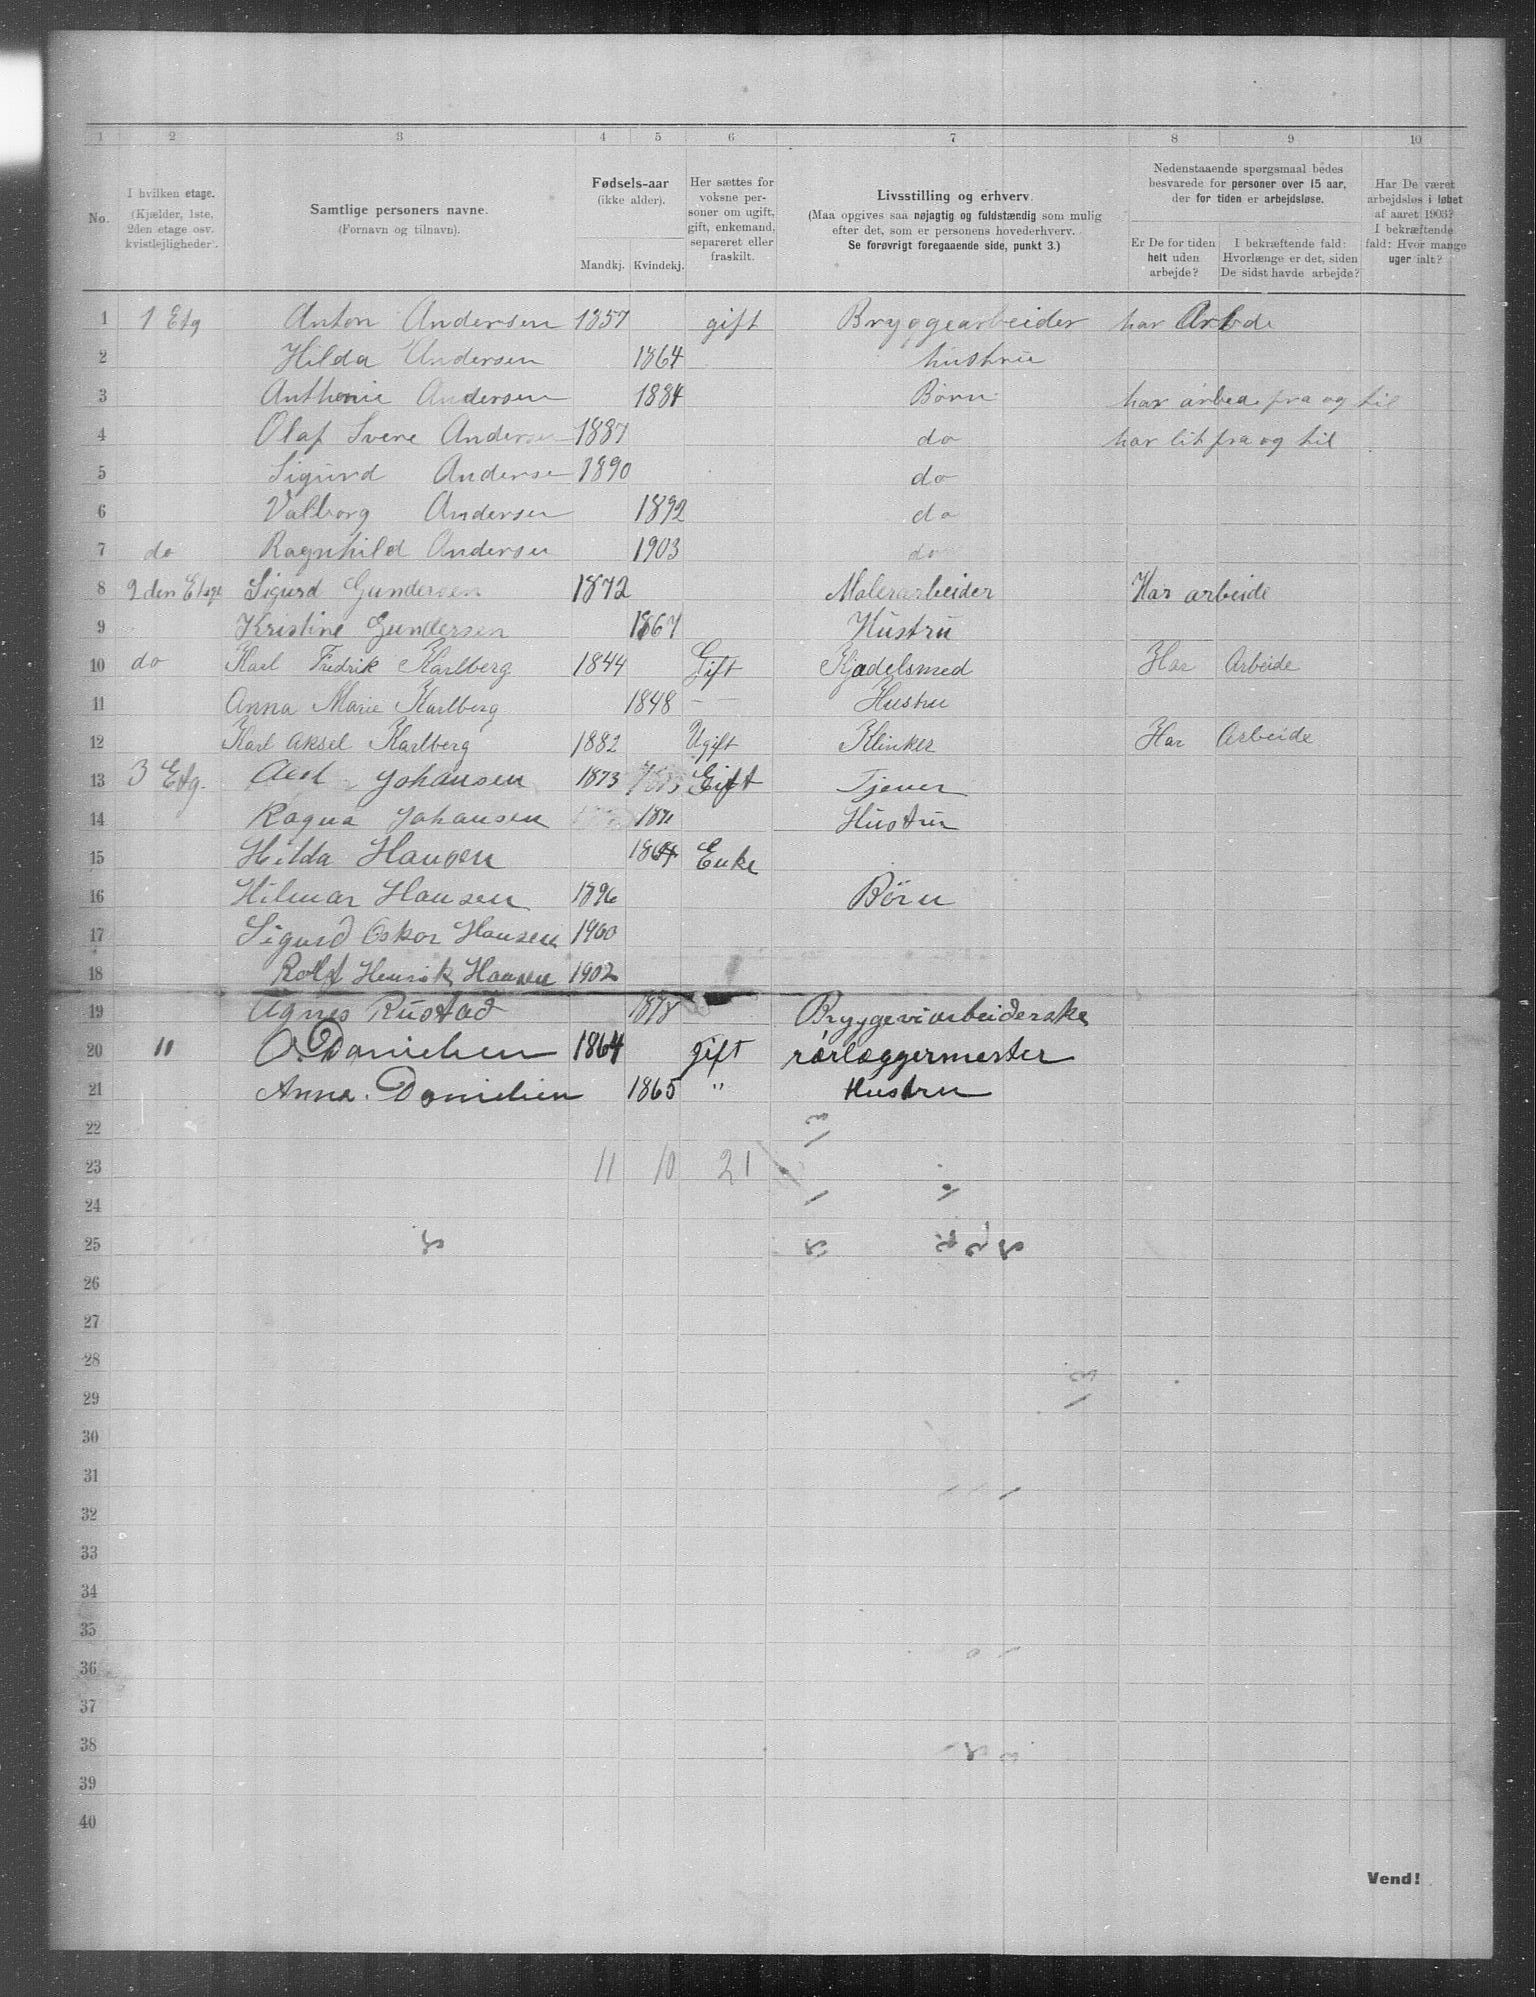 1 2 3 4 5 6 7 8 9 10
No.
I hvilken etage.
(Kjælder, 1ste,
2den etage osv.
kvistlejligheder).
Samtlige personers navne.
(Fornavn og tilnavn).
Fødsels-aar
(ikke alder).
Mandkj. Kvindekj.
Her sættes for
voksne per-
soner om ugift,
gift, enkemand,
separeret eller
fraskilt.
Livsstilling og erhverv.
(Maa opgives saa nøjagtig og fuldstændig som mulig
efter det, som er personens hovederhverv.
Se forøvrigt foregaaende side, punkt 3.)
Nedenstaaende spørgsmaal bedes
besvarede for personer over 15 aar,
der for tiden er arbejdsløse.
Er De for tiden
helt uden
arbejde?
I bekræftende fald:
Hvorlænge er det, siden
De sidst havde arbejde?
Har De været
arbejdsløs i løbet
af aaret 1903?
I bekræftende
fald: Hvor mange
uger ialt?
1 1 Etg Anton Andersen 1857 gift Bryggearbeider har Arbde
2 Hilda Andersen 1864 hustru
3 Anthonie Andersen 1884 Børn har arbede fra og til
4 Olaf Svere Andersen 1887 do har lit fra og til
5 Sigurd Anderse 1890 do
6 Valborg Andersen 1892 do
7 do Ragnhild Andersen 1903 do
8 2 den Etage Sigurd Gundersen 1872 Malerarbeider Har arbeide
9 Kristine Gundersen 1867 Hustru
10 do Karl Fredrik Karlberg 1844 Gift Kjædelsmed Har Arbeide
11 Anna Marie Karlberg 1848 — Hustru
12 Karl Aksel Karlberg 1882 Ugift Klinker Har Arbeide
13 3 Etg. Johansen 1873 Gift Tjener
14 Ragna Johansen 187 Hustru
15 Hilda Hansen 1864 Enke
16 Hilmar Hansen 1896 Børn
17 Sigurd Oskar Hansen 1900
18 Rolf Henrik Hansen 1902
19 Agnes Rustad 1878 Bryggeriarbeiderske
20 " O. Danielsen 1864 gift rørlæggermester
21 Anna. Danielsen 1865 " Hustru
22
23 11 10 21
24
25
26
27
28
29
30
31
32
33
34
35
36
37
38
39
40
Vend!